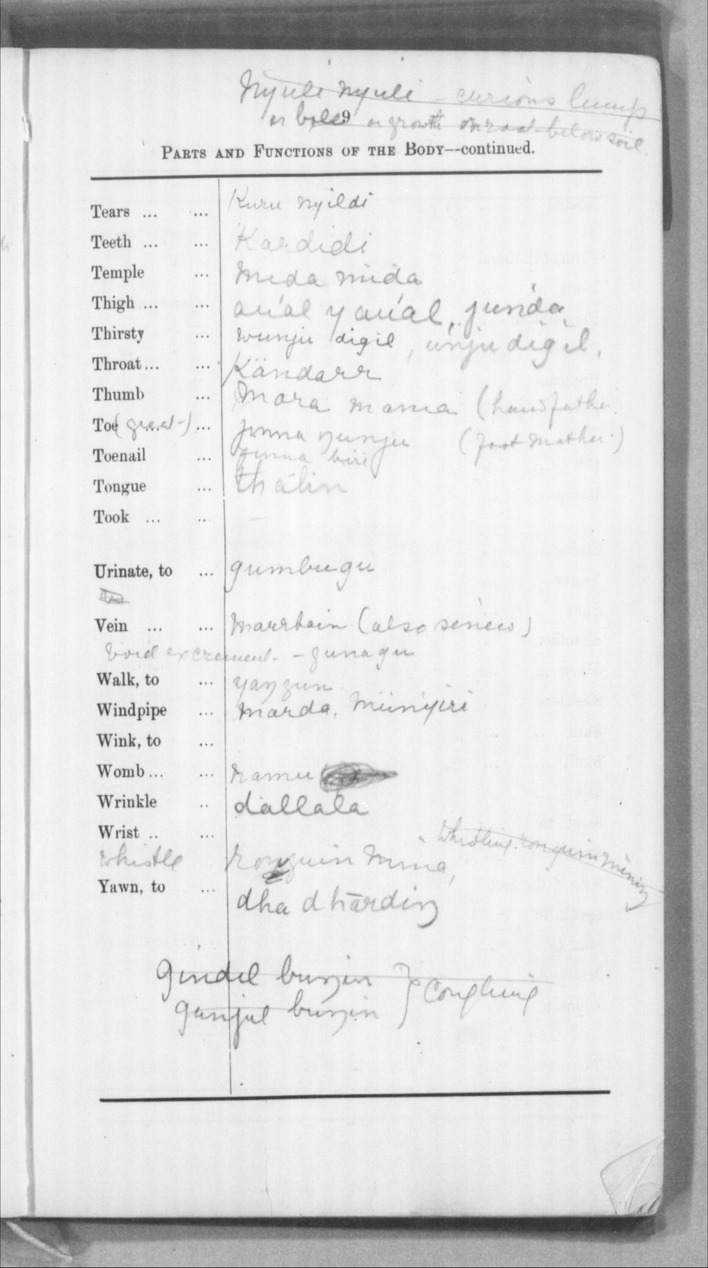 Nyuli nyuli - curious lump
or bole or growth on root below soil.
9
PARTS AND FUNCTIONS OF THE BODY—continued.
Tears ... ... Kuru nyildi
Teeth ... ... Kardidi
Temple ... mida mida
Thigh ... ... junda
Thirsty ... wunju digil, unju digil,
Throat ... ... Kandarr
Thumb ... Mara mama (hand father.)
Toe (great) ... jinna yunju (foot mother.)
Toenail ... jinna biri
Tongue ... thalin
Took ... ..
Urinate, to ... gumbugu
Vein ... ... Marrbain (also sinews)
Void excrement - gunagu
Walk, to ... yangun
Windpipe ... marda, Minyiri
Wink, to ...
Womb ... ... ramu
Wrinkle .. dallala
Wrist .. ...
Whistle mina,
Whistling
Yawn, to ... dha dhārdin
Gindil bunjin } Coughing
Gunjul bunjin